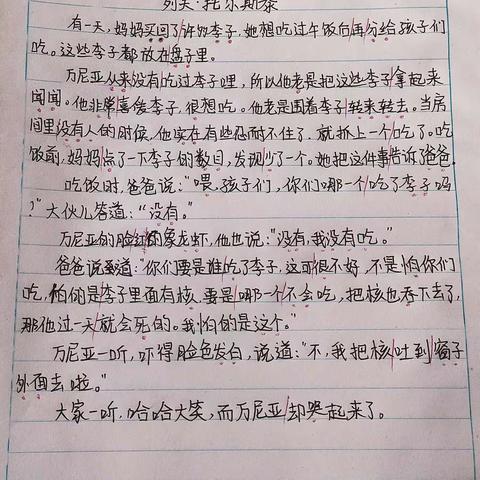 列夫·托尔斯泰
有一天,妈妈买回了许多李子,她想吃过午饭后再分给孩子们
吃。这些李子都放在盘子里。
万尼亚从来没有吃过李子哩,所以他老是把这些李子拿起来
闻闻。他非常喜爱李子,很想吃。他老是围着李子转来转去。当房
间里没有人的时候,他实在有些忍耐不住了,就抓上一个吃了。吃
饭前,妈妈点了一下李子的数目,发现少了一个。她把这件事告诉爸爸。
吃饭时,爸爸说:“喂,孩子们,你们哪一个吃了李子吗
?”大伙儿答道:“没有。”
万尼亚的脸红的象龙虾,他也说:“没有,我没有吃。”
爸爸说道:“你们要是谁吃了李子,这可很不好,不是怕你们
吃,怕的是李子里面有核,要是哪一个不会吃,把核也吞下去了,
那他过一天就会死的。我怕的是这个。”
万尼亚一听,吓得脸色发白,说道:“不,我把核吐到窗子
外面去啦。”
大家一听,哈哈大笑,而万尼亚却哭起来了。